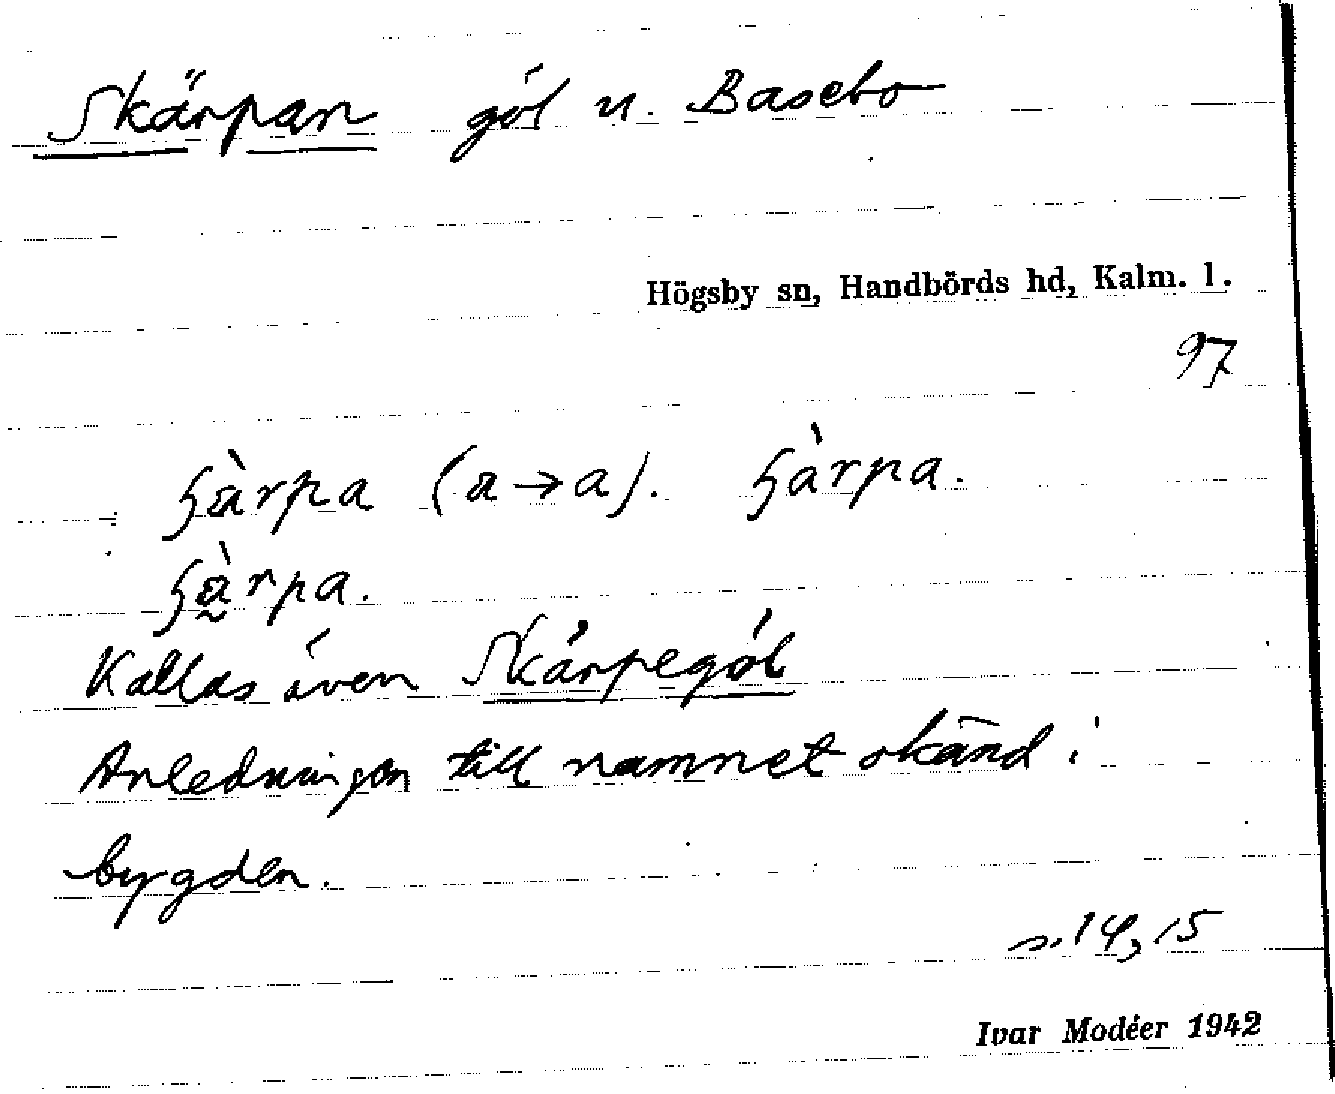 Skärpan göl u. Basebo
Högsby sn, Handbörds hd, Kalm. l.
97
ʃàrpa (a→a). ʃàrpa.
ʃà̰rpa.
Kallas även Skärpegöl
Anledningen till namnet okänd i
bygden.
s. 14, 15
Ivar Modéer 1942